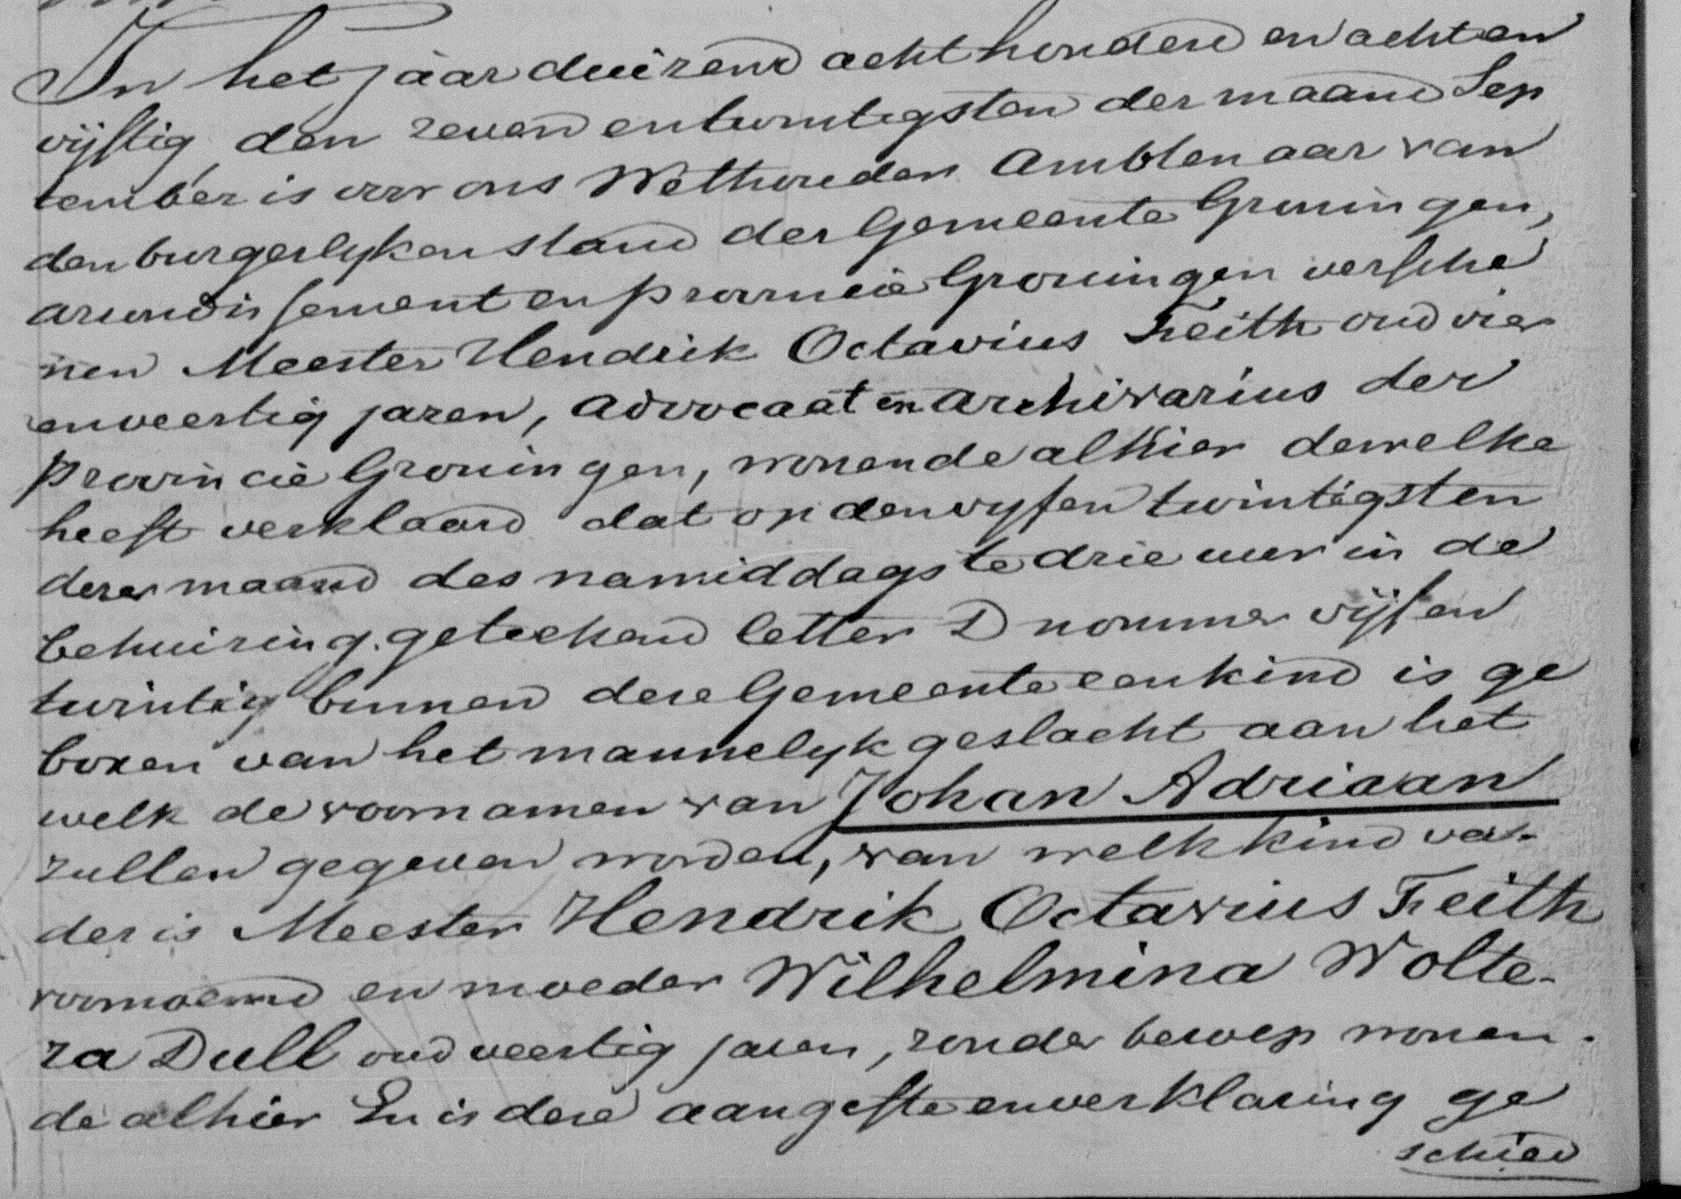 In het jaar duizend achthonderd en acht en
vijftig den zeven en twintigsten der maand Sep
tember is voor ons Wethouder Ambtenaar van
den burgerlyken stand der Gemeente Groningen,
arrondissement en provincie Groningen versche
nen Meester Hendrik Octavius Feith oud vier
en veertig jaren, advocaat en archivarius der
provincie Groningen, wonende alhier dewelke
heeft verklaard dat op den vyf en twintigsten
dezer maand des namiddags te drie uur in de
behuizing geteekend letter D nommer vijf en
twintig binnen deze Gemeente een kind is ge
boren van het mannelyk geslacht aan het
welk de voornamen van Johan Adriaan
zullen gegeven worden, van welk kind va-
der is Meester Hendrik Octavius Feith
voornoemd en moeder Wilhelmina Wolte-
ra Dull oud veertig jaren, zonder beroep wonen-
de alhier En is deze aangifte en verklaring ge
schied